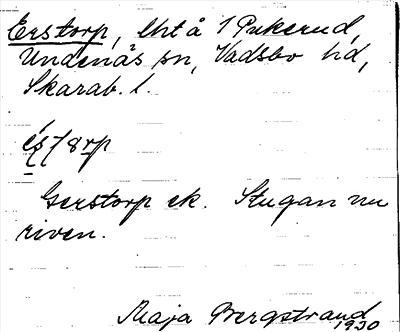 Erstorp, lht å 1 Pukerud,
Undenäs sn, Vadsbo hd,
Skarab. l.
Gerstorp ek. Stugan nu
riven.
Maja Bergstrand
1930